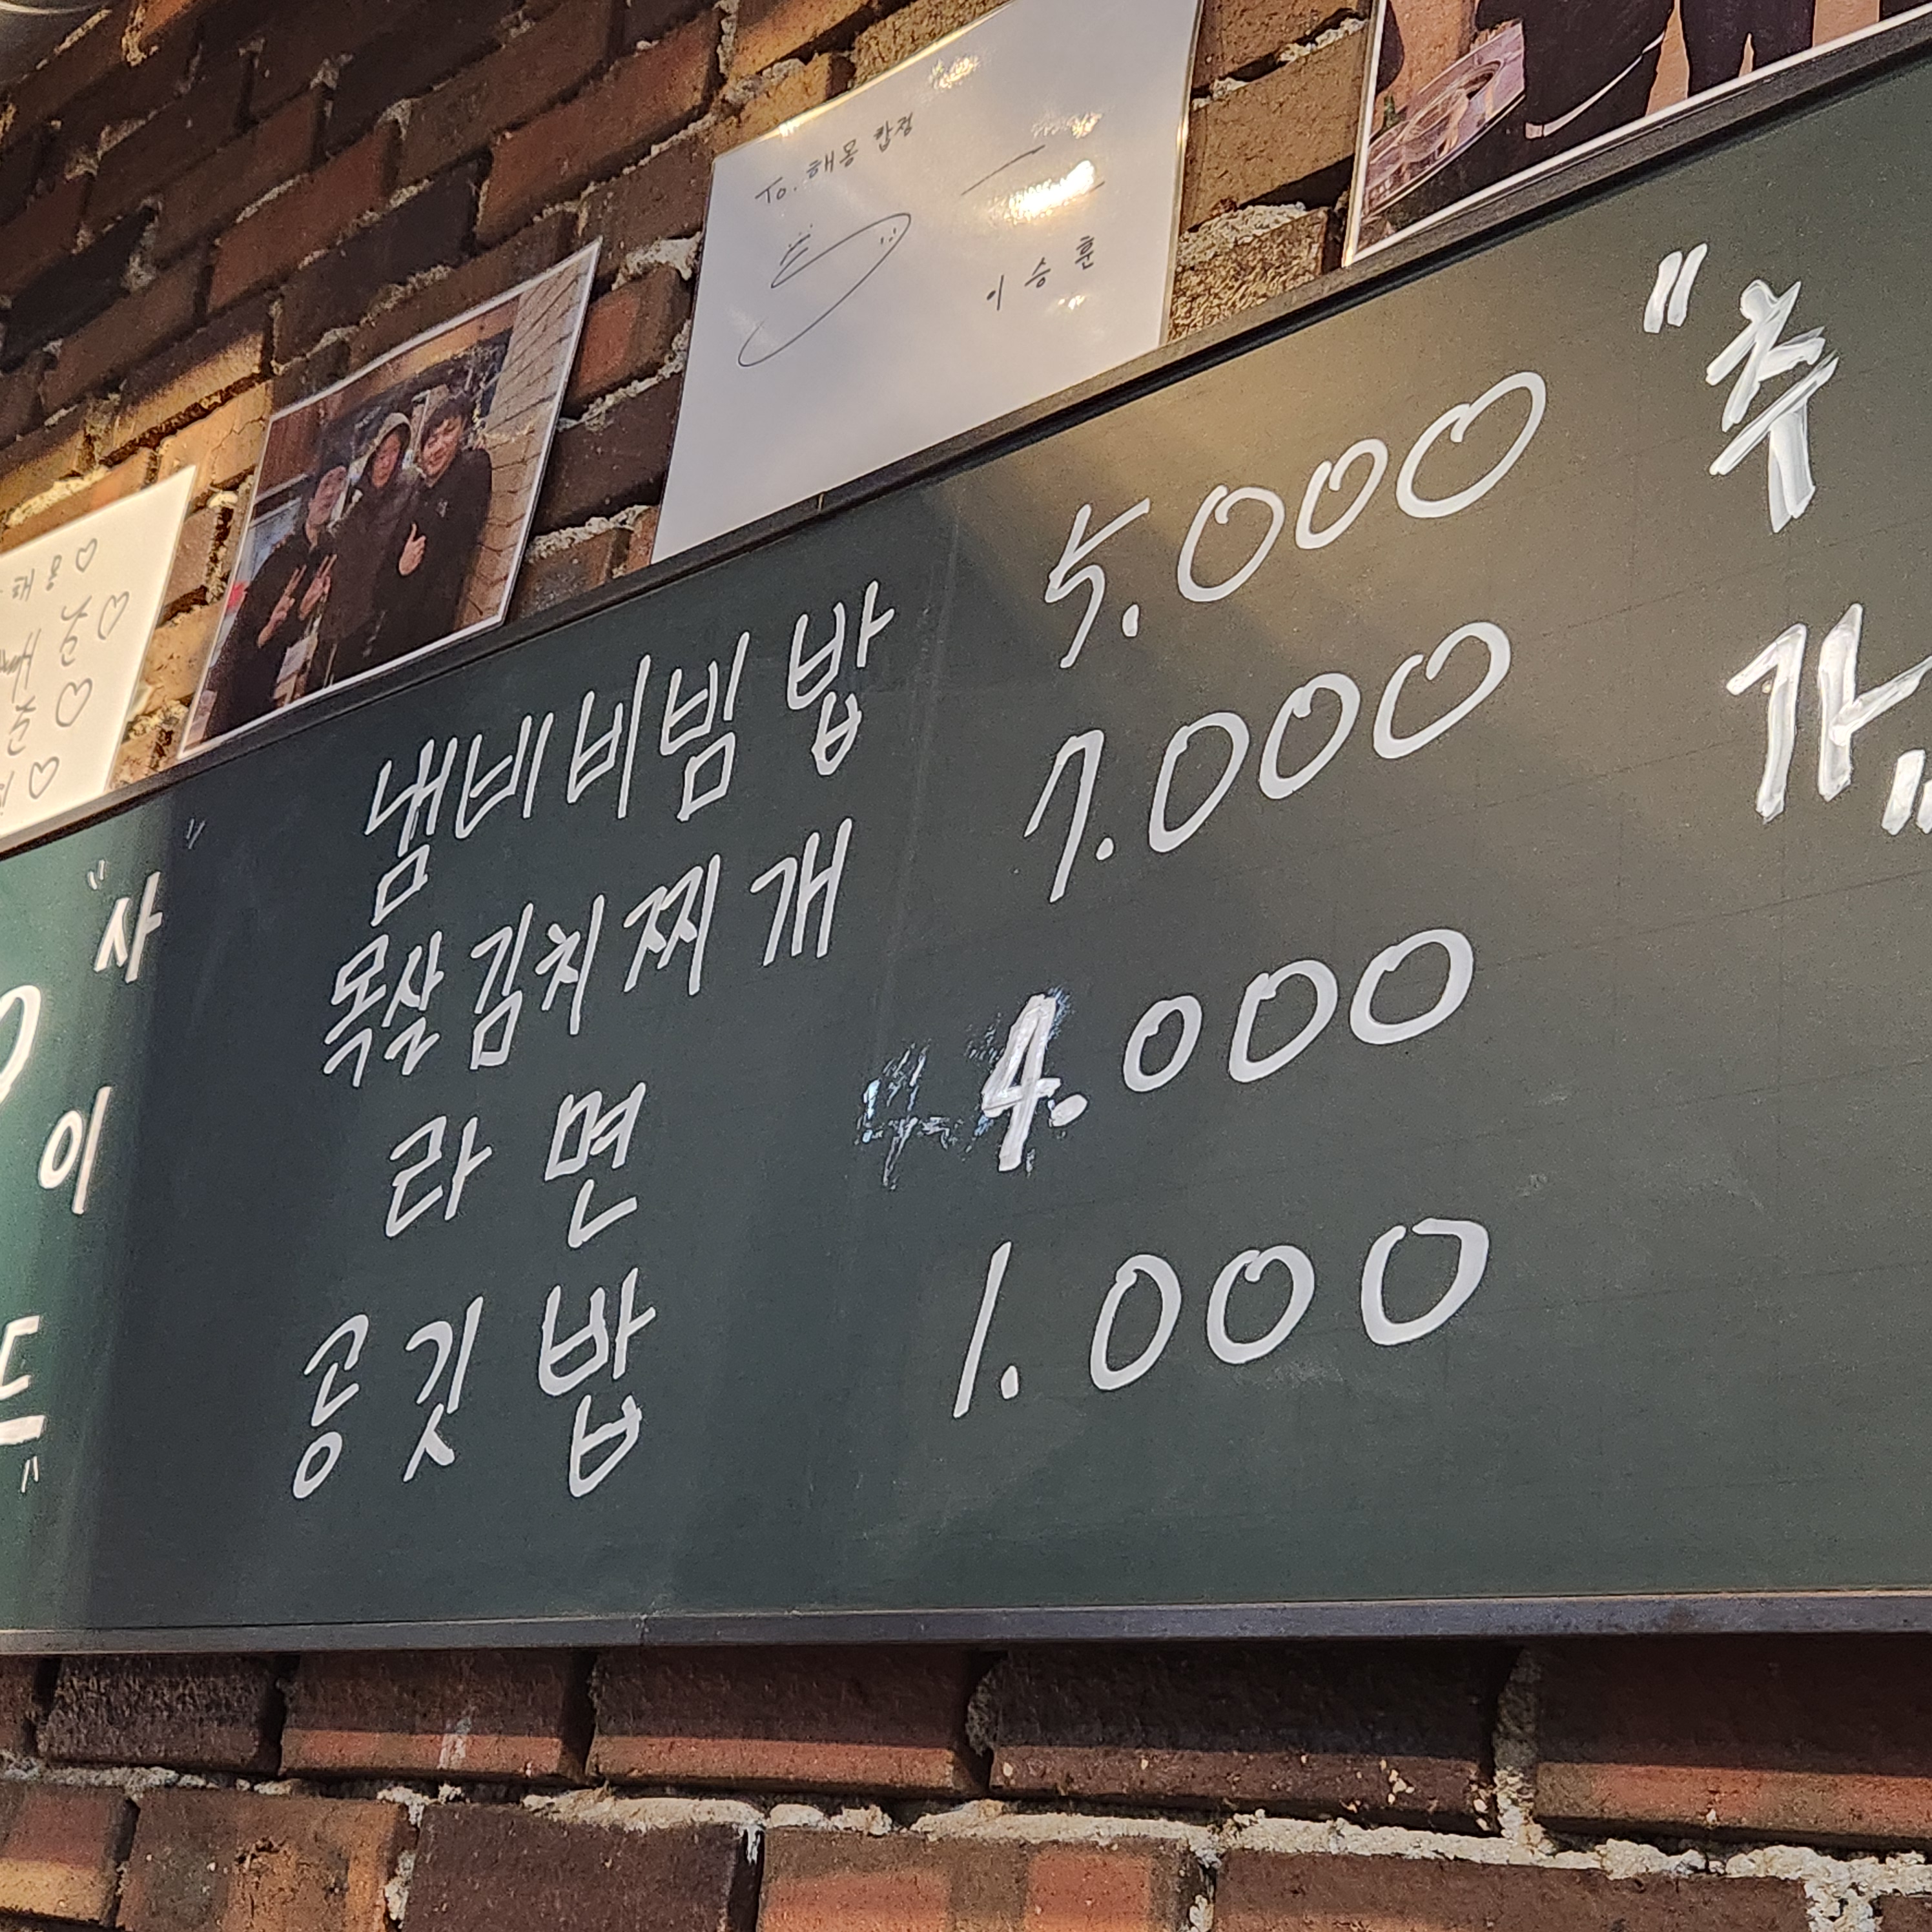 To. 해몽 합정
이승훈
해몽♡
"사이드"
냄비비빔밥 5.000
목살김치찌개 7.000
라면 4.000
공깃밥 1.000
"추가"